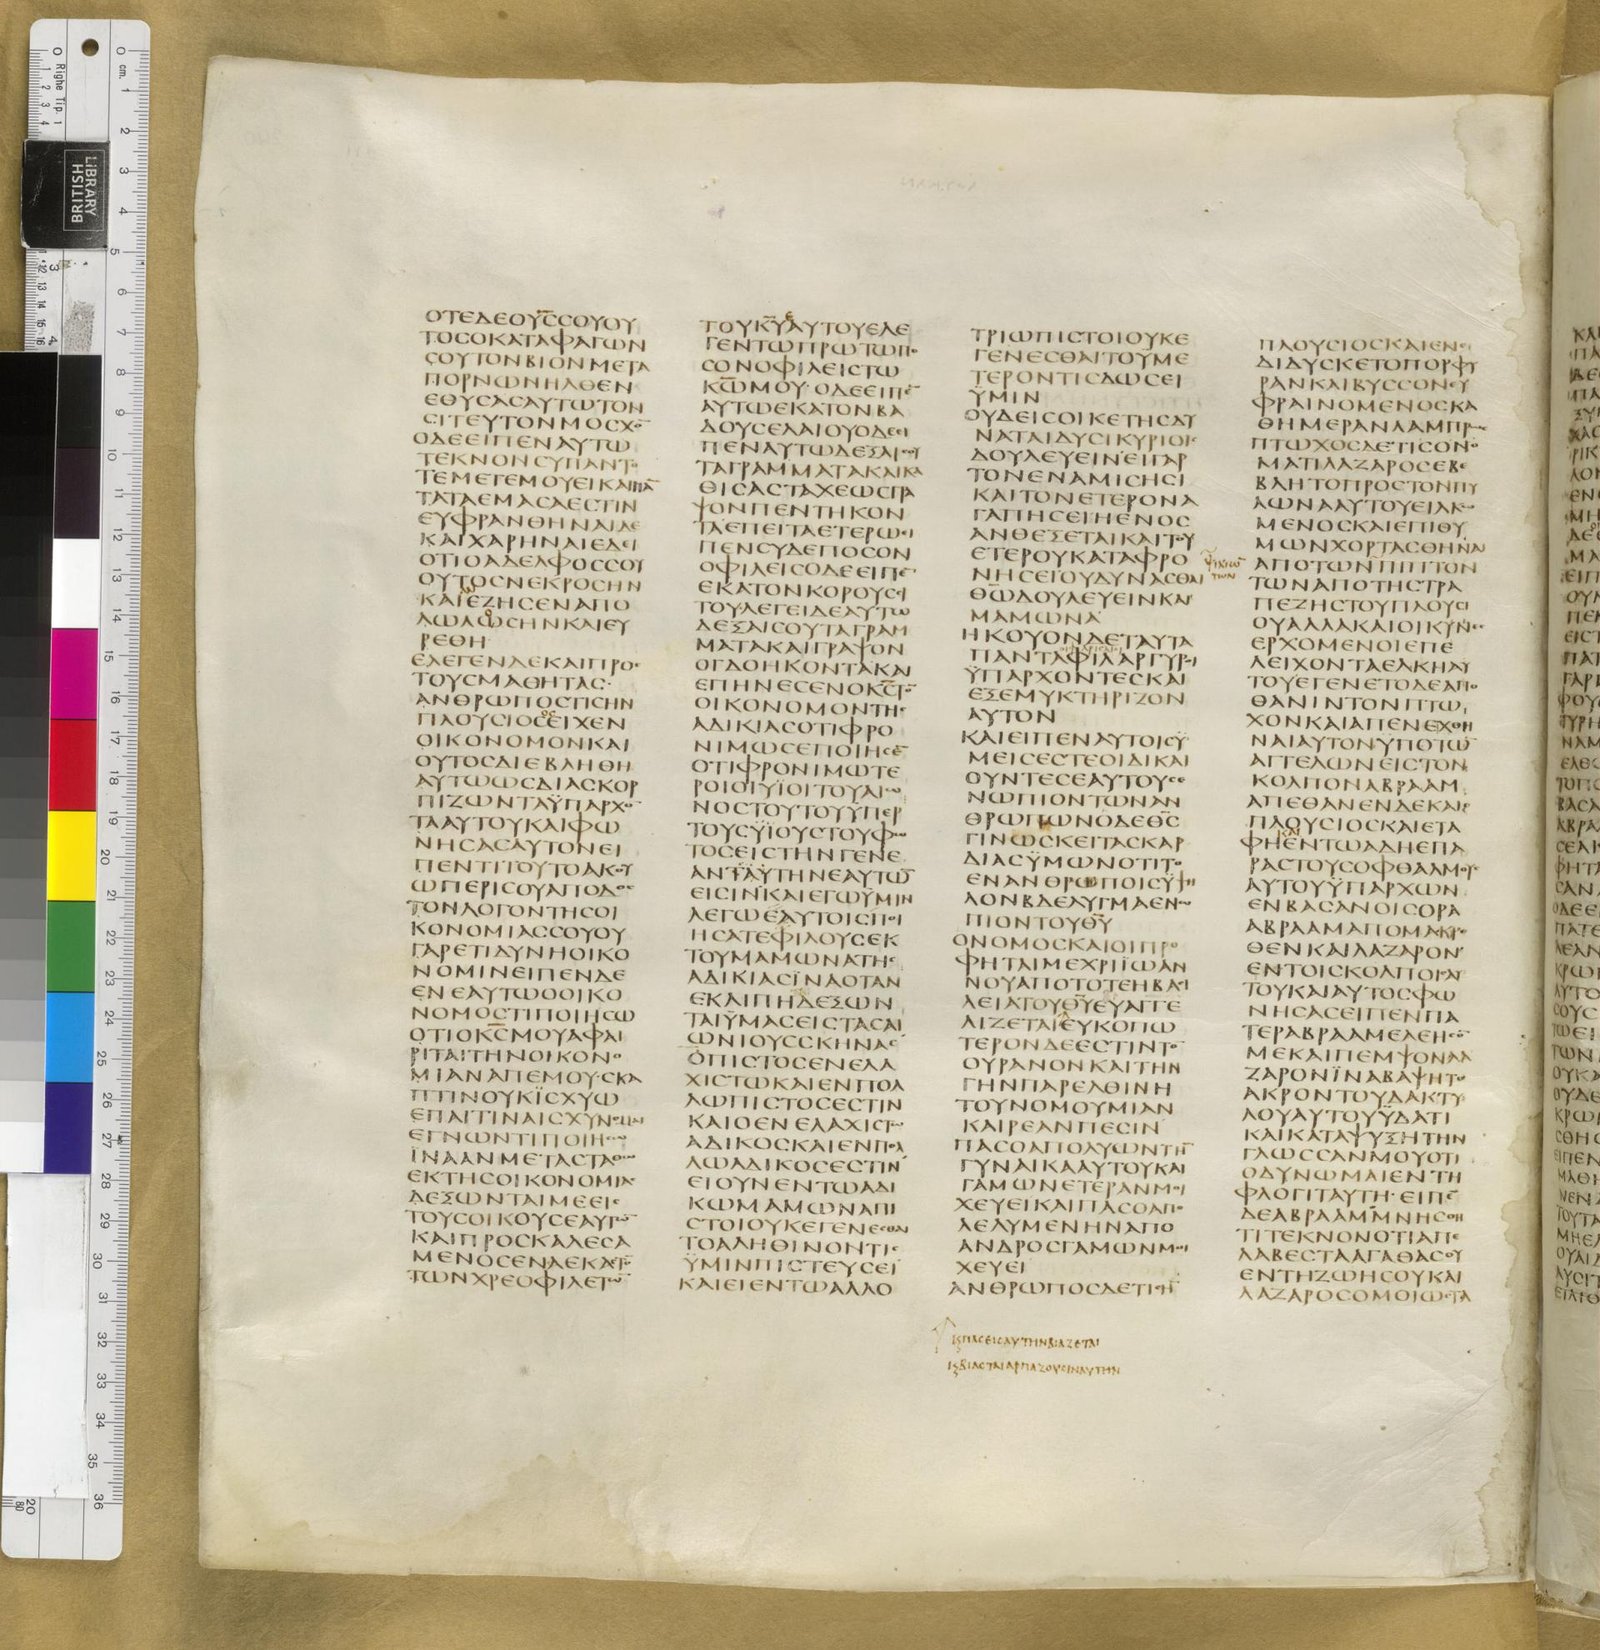 ΟΤΕΔΕΟΥΣΣΟΥΟΥ
ΤΟΣΟΚΑΤΑΦΑΓΩΝ
ΣΟΥΤΟΝΒΙΟΝΜΕΤΑ
ΠΟΡΝΩΝΗΛΘΕΝ
ΕΘΥΣΑΣΑΥΤΩΤΟΝ
ΣΙΤΕΥΤΟΝΜΟΣΧΟ̅
ΟΔΕΕΙΠΕΝΑΥΤΩ
ΤΕΚΝΟΝΣΥΠΑΝΤΟ
ΤΕΜΕΤΕΜΟΥΕΙΚΑΙΠΑ̅
ΤΑΤΑΕΜΑΣΑΕΣΤΙΝ
ΕΥΦΡΑΝΘΗΝΑΙΔΕ
ΚΑΙΧΑΡΗΝΑΙΕΔΕΙ
ΟΤΙΟΑΔΕΛΦΟΣΣΟΥ
ΟΥΤΟΣΝΕΚΡΟΣΗΝ
ΚΑΙΕΖΗΣΕΝΑΠΟ
ΛΩΛΩΣΗΝΚΑΙΕΥ
ΡΕΘΗ
ΕΛΕΓΕΝΔΕΚΑΙΠΡΟΣ
ΤΟΥΣΜΑΘΗΤΑΣ·
ΑΝΘΡΩΠΟΣΤΙΣΗΝ
ΠΛΟΥΣΙΟΣΕΙΧΕΝ
ΟΙΚΟΝΟΜΟΝΚΑΙ
ΟΥΤΟΣΔΙΕΒΛΗΘΗ
ΑΥΤΩΩΣΔΙΑΣΚΟΡ
ΠΙΖΩΝΤΑΫΠΑΡΧΟ̅
ΤΑΑΥΤΟΥΚΑΙΦΩ
ΝΗΣΑΣΑΥΤΟΝΕΙ
ΠΕΝΤΙΤΟΥΤΟΑΚΟΥ
ΩΠΕΡΙΣΟΥΑΠΟΔΟΣ
ΤΟΝΛΟΓΟΝΤΗΣΟΙ
ΚΟΝΟΜΙΑΣΣΟΥΟΥ
ΓΑΡΕΤΙΔΥΝΗΟΙΚΟ
ΝΟΜΙΝΕΙΠΕΝΔΕ
ΕΝΕΑΥΤΩΟΟΙΚΟ
ΝΟΜΟΣΤΙΠΟΙΗΣΩ
ΟΤΙΟΚ̅Σ̅ΜΟΥΑΦΑΙ
ΡΙΤΑΙΤΗΝΟΙΚΟΝΟ
ΜΙΑΝΑΠΕΜΟΥ·ΣΚΑ
ΠΤΙΝΟΥΚΙΣΧΥΩ
ΕΠΑΙΤΙΝΑΙΣΧΥΝΟΜΑΙ
ΕΓΝΩΝΤΙΠΟΙΗΣΩ
ΪΝΑΑΝΜΕΤΑΣΤΑΘΩ
ΕΚΤΗΣΟΙΚΟΝΟΜΙΑΣ
ΔΕΞΩΝΤΑΙΜΕΕΙΣ
ΤΟΥΣΟΙΚΟΥΣΕΑΥΤΩ̅
ΚΑΙΠΡΟΣΚΑΛΕΣΑ
ΜΕΝΟΣΕΝΑΕΚΑΣΤΟ̅
ΤΩΝΧΡΕΟΦΙΛΕΤΩ̅
ΤΟΥΚ̅Υ̅ΑΥΤΟΥΕΛΕ
ΓΕΝΤΩΠΡΩΤΩΠΟ
ΣΟΝΟΦΙΛΕΙΣΤΩ
Κ̅Ω̅ΜΟΥ·ΟΔΕΕΙΠΕ̅
ΑΥΤΩΕΚΑΤΟΝΒΑ
ΔΟΥΣΕΛΑΙΟΥΟΔΕΕΙ
ΠΕΝΑΥΤΩΔΕΞΑΙΣΟΥ
ΤΑΓΡΑΜΜΑΤΑΚΑΙΚΑ
ΘΙΣΑΣΤΑΧΕΩΣΓΡΑ
ΨΟΝΠΕΝΤΗΚΟΝ
ΤΑΕΠΕΙΤΑΕΤΕΡΩΕΙ
ΠΕΝΣΥΔΕΠΟΣΟΝ
ΟΦΙΛΕΙΣΟΔΕΕΙΠΕ̅
ΕΚΑΤΟΝΚΟΡΟΥΣΣΙ
ΤΟΥΛΕΓΕΙΔΕΑΥΤΩ
ΔΕΞΑΙΣΟΥΤΑΓΡΑΜ
ΜΑΤΑΚΑΙΓΡΑΨΟΝ
ΟΓΔΟΗΚΟΝΤΑΚΑΙ
ΕΠΗΝΕΣΕΝΟΚ̅Σ̅ΤΟ̅
ΟΙΚΟΝΟΜΟΝΤΗΣ
ΑΔΙΚΙΑΣΟΤΙΦΡΟ
ΝΙΜΩΣΕΠΟΙΗΣΕ̅
ΟΤΙΦΡΟΝΙΜΩΤΕ
ΡΟΙΟΙΫΙΟΙΤΟΥΑΙΩ
ΝΟΣΤΟΥΤΟΥΫΠΕΡ
ΤΟΥΣΫΪΟΥΣΤΟΥΦΩ
ΤΟΣΕΙΣΤΗΝΓΕΝΕ
ΑΝΤΑΥΤΗΝΕΑΥΤΩ̅
ΕΙΣΙΝΚΑΙΕΓΩΫΜΙΝ
ΛΕΓΩΕΑΥΤΟΙΣΠΟΙ
ΗΣΑΤΕΦΙΛΟΥΣΕΚ
ΤΟΥΜΑΜΩΝΑΤΗΣ
ΑΔΙΚΙΑΣΪΝΑΟΤΑΝ
ΕΚΛΙΠΗΔΕΞΩΝ
ΤΑΙΫΜΑΣΕΙΣΤΑΣΑΙ
ΩΝΙΟΥΣΣΚΗΝΑΣ
ΟΠΙΣΤΟΣΕΝΕΛΑ
ΧΙΣΤΩΚΑΙΕΝΠΟΛ
ΛΩΠΙΣΤΟΣΕΣΤΙΝ
ΚΑΙΟΕΝΕΛΑΧΙΣΤΩ
ΑΔΙΚΟΣΚΑΙΕΝΠΟΛ
ΛΩΑΔΙΚΟΣΕΣΤΙΝ
ΕΙΟΥΝΕΝΤΩΑΔΙ
ΚΩΜΑΜΩΝΑΠΙ
ΣΤΟΙΟΥΚΕΓΕΝΕΣΘΑΙ
ΤΟΑΛΗΘΙΝΟΝΤΙΣ
ΫΜΙΝΠΙΣΤΕΥΣΕΙ
ΚΑΙΕΙΕΝΤΩΑΛΛΟ
ΤΡΙΩΠΙΣΤΟΙΟΥΚΕ
ΓΕΝΕΣΘΑΙΤΟΥΜΕ
ΤΕΡΟΝΤΙΣΔΩΣΕΙ
ΫΜΙΝ
ΟΥΔΕΙΣΟΙΚΕΤΗΣΔΥ
ΝΑΤΑΙΔΥΣΙΚΥΡΙΟΙΣ
ΔΟΥΛΕΥΕΙΝΕΙΓΑΡ
ΤΟΝΕΝΑΜΙΣΗΣΙ
ΚΑΙΤΟΝΕΤΕΡΟΝΑ
ΓΑΠΗΣΕΙΗΕΝΟΣ
ΑΝΘΕΞΕΤΑΙΚΑΙΤΟΥ
ΕΤΕΡΟΥΚΑΤΑΦΡΟ
ΝΗΣΕΙΟΥΔΥΝΑΣΘΑΙ
Θ̅Ω̅ΔΟΥΛΕΥΕΙΝΚΑΙ
ΜΑΜΩΝΑ
ΗΚΟΥΟΝΔΕΤΑΥΤΑ
ΠΑΝΤΑΦΙΛΑΡΓΥΡΟΙ
ΫΠΑΡΧΟΝΤΕΣΚΑΙ
ΕΞΕΜΥΚΤΗΡΙΖΟΝ
ΑΥΤΟΝ
ΚΑΙΕΙΠΕΝΑΥΤΟΙΣΫ
ΜΕΙΣΕΣΤΕΟΙΔΙΚΑΙ
ΟΥΝΤΕΣΕΑΥΤΟΥΣΕ
ΝΩΠΙΟΝΤΩΝΑΝ
ΘΡΩΠΩΝΟΔΕΘ̅Σ̅
ΓΙΝΩΣΚΕΙΤΑΣΚΑΡ
ΔΙΑΣΫΜΩΝΟΤΙΤΟ
ΕΝΑΝΘΡΩΠΟΙΣΫΨΗ
ΛΟΝΒΔΕΛΥΓΜΑΕΝΩ
ΠΙΟΝΤΟΥΘ̅Υ̅
ΟΝΟΜΟΣΚΑΙΟΙΠΡΟ
ΦΗΤΑΙΜΕΧΡΙΪΩΑΝ
ΝΟΥΑΠΟΤΟΤΕΗΒΑΣΙ
ΛΕΙΑΤΟΥΘ̅Υ̅ΕΥΑΓΓΕ
ΛΙΖΕΤΑΙΕΥΚΟΠΩ
ΤΕΡΟΝΔΕΕΣΤΙΝΤΟ̅
ΟΥΡΑΝΟΝΚΑΙΤΗΝ
ΓΗΝΠΑΡΕΛΘΙΝΗ
ΤΟΥΝΟΜΟΥΜΙΑΝ
ΚΑΙΡΕΑΝΠΕΣΙΝ
ΠΑΣΟΑΠΟΛΥΩΝΤΗ̅
ΓΥΝΑΙΚΑΑΥΤΟΥΚΑΙ
ΓΑΜΩΝΕΤΕΡΑΝΜΟΙ
ΧΕΥΕΙΚΑΙΠΑΣΟΑΠΟ
ΛΕΛΥΜΕΝΗΝΑΠΟ
ΑΝΔΡΟΣΓΑΜΩΝΜΟΙ
ΧΕΥΕΙ
ΑΝΘΡΩΠΟΣΔΕΤΙΣΗ̅
ΙϚΠΑΣΕΙΣΑΥΤΗΝΒΙΑΖΕΤΑΙ
ΙϚΒΙΑΣΤΑΙΑΡΠΑΖΟΥΣΙΝΑΥΤΗΝ
ΠΛΟΥΣΙΟΣΚΑΙΕΝΕ
ΔΙΔΥΣΚΕΤΟΠΟΡΦΥ
ΡΑΝΚΑΙΒΥΣΣΟΝΕΥ
ΦΡΑΙΝΟΜΕΝΟΣΚΑ
ΘΗΜΕΡΑΝΛΑΜΠΡΩΣ
ΠΤΩΧΟΣΔΕΤΙΣΟΝΟ
ΜΑΤΙΛΑΖΑΡΟΣΕΒΕ
ΒΛΗΤΟΠΡΟΣΤΟΝΠΥ
ΛΩΝΑΑΥΤΟΥΕΙΛΚΩ
ΜΕΝΟΣΚΑΙΕΠΙΘΥ
ΜΩΝΧΟΡΤΑΣΘΗΝΑΙ
ΑΠΟΤΩΝΠΙΠΤΟΝ
ΤΩΝΑΠΟΤΗΣΤΡΑ
ΠΕΖΗΣΤΟΥΠΛΟΥΣΙ
ΟΥΑΛΛΑΚΑΙΟΙΚΥΝΕΣ
ΕΡΧΟΜΕΝΟΙΕΠΕ
ΛΕΙΧΟΝΤΑΕΛΚΗΑΥ
ΤΟΥΕΓΕΝΕΤΟΔΕΑΠΟ
ΘΑΝΙΝΤΟΝΠΤΩ
ΧΟΝΚΑΙΑΠΕΝΕΧΘΗ
ΝΑΙΑΥΤΟΝΥΠΟΤΩ̅
ΑΓΓΕΛΩΝΕΙΣΤΟΝ
ΚΟΛΠΟΝΑΒΡΑΑΜ
ΑΠΕΘΑΝΕΝΔΕΚΑΙΟ
ΠΛΟΥΣΙΟΣΚΑΙΕΤΑ
ΦΗΕΝΤΩΑΔΗΕΠΑ
ΡΑΣΤΟΥΣΟΦΘΑΛΜΟΥΣ
ΑΥΤΟΥΫΠΑΡΧΩΝ
ΕΝΒΑΣΑΝΟΙΣΟΡΑ
ΑΒΡΑΑΜΑΠΟΜΑΚΡΟ
ΘΕΝΚΑΙΛΑΖΑΡΟΝ
ΕΝΤΟΙΣΚΟΛΠΟΙΣΑΥ
ΤΟΥΚΑΙΑΥΤΟΣΦΩ
ΝΗΣΑΣΕΙΠΕΝΠΑ
ΤΕΡΑΒΡΑΑΜΕΛΕΗΣΟ̅
ΜΕΚΑΙΠΕΜΨΟΝΛΑ
ΖΑΡΟΝΪΝΑΒΑΨΗΤΟ
ΑΚΡΟΝΤΟΥΔΑΚΤΥ
ΛΟΥΑΥΤΟΥΫΔΑΤΙ
ΚΑΙΚΑΤΑΨΥΞΗΤΗΝ
ΓΛΩΣΣΑΝΜΟΥΟΤΙ
ΟΔΥΝΩΜΑΙΕΝΤΗ
ΦΛΟΓΙΤΑΥΤΗ·ΕΙΠΕ̅
ΔΕΑΒΡΑΑΜΜΝΗΣΘΗ
ΤΙΤΕΚΝΟΝΟΤΙΑΠΕ
ΛΑΒΕΣΤΑΑΓΑΘΑΣΟΥ
ΕΝΤΗΖΩΗΣΟΥΚΑΙ
ΛΑΖΑΡΟΣΟΜΟΙΩΣΤΑ